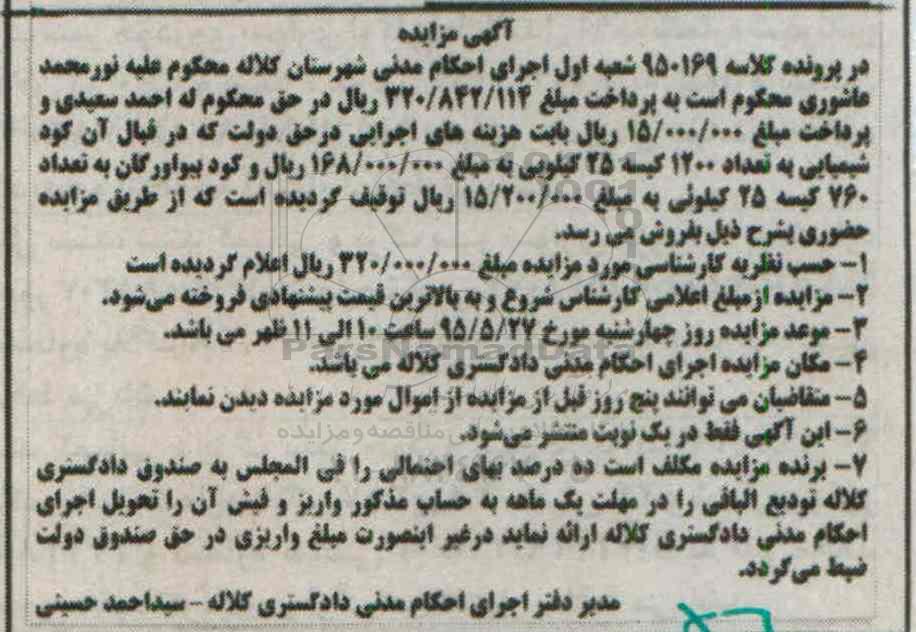 آگهی مزایده
در پرونده کلاسه ۹۵۰۱۶۹ شعبه اول اجرای احکام مدنی شهرستان کلاله محکوم علیه نورمحمد
عاشوری محکوم است به پرداخت مبلغ ۳۲۰/۸۴۲/۱۱۴ ریال در حق محکوم له احمد سعیدی و
پرداخت مبلغ ۱۵/۰۰۰/۰۰۰ ریال بابت هزینه های اجرایی درحق دولت که در قبال آن کود
شیمیایی به تعداد ۱۲۰۰ کیسه ۲۵ کیلویی به مبلغ ۱۶۸/۰۰۰/۰۰۰ ریال و کود بیواورگان به تعداد
۷۶۰ کیسه ۲۵ کیلوئی به مبلغ ۱۵/۲۰۰/۰۰۰ ریال توقیف گردیده است که از طریق مزایده
حضوری بشرح ذیل بفروش می رسد.
۱- حسب نظریه کارشناسی مورد مزایده مبلغ ۳۲۰/۰۰۰/۰۰۰ ریال اعلام گردیده است
۲- مزایده ازمبلغ اعلامی کارشناس شروع و به بالاترین قیمت پیشنهادی فروخته می‌شود.
۳- موعد مزایده روز چهارشنبه مورخ ۹۵/۵/۲۷ ساعت ۱۰ الی ۱۱ ظهر می باشد.
ParsNamadData
۴- مکان مزایده اجرای احکام مدنی دادگستری کلاله می باشد.
۵- متقاضیان می توانند پنج روز قبل از مزایده از اموال مورد مزایده دیدن نمایند.
۶- این آگهی فقط در یک نوبت منتشر می‌شود.
مناقصه و مزایده
۷- برنده مزایده مکلف است ده درصد بهای احتمالی را فی المجلس به صندوق دادگستری
کلاله تودیع الباقی را در مهلت یک ماهه به حساب مذکور واریز و فیش آن را تحویل اجرای
احکام مدنی دادگستری کلاله ارائه نماید درغیر اینصورت مبلغ واریزی در حق صندوق دولت
ضبط می‌گردد.
مدیر دفتر اجرای احکام مدنی دادگستری کلاله - سیداحمد حسینی